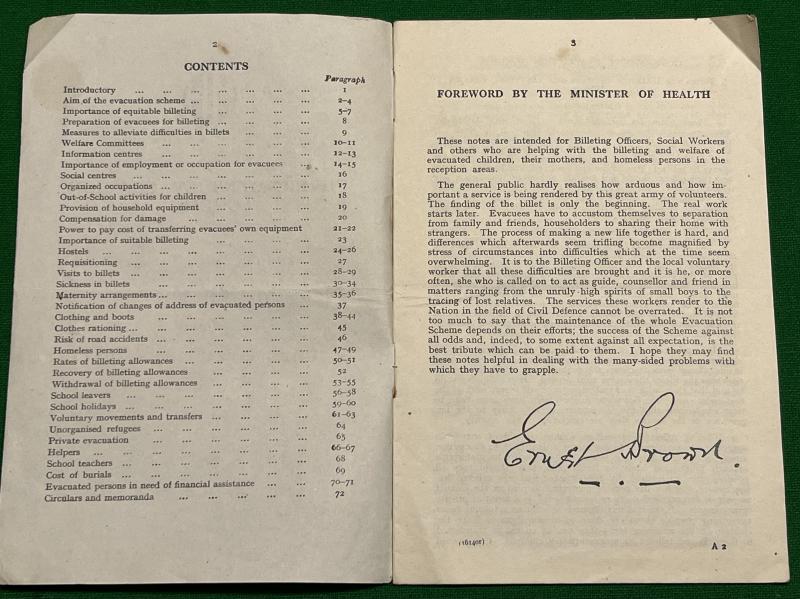 2
CONTENTS
Paragraph
Introductory ... ... ... ... ... ... ... 1
Aim of the evacuation scheme ... ... ... ... ... 2-4
Importance of equitable billeting ... ... ... ... 5-7
Preparation of evacuees for billeting ... ... ... ... 8
Measures to alleviate difficulties in billets ... ... ... 9
Welfare Committees ... ... ... ... ... ... 10-11
Information centres ... ... ... ... ... ... 12-13
Importance of employment or occupation for evacuees ... 14-15
Social centres ... ... ... ... ... ... ... 16
Organized occupations ... ... ... ... ... ... 17
Out-of-School activities for children ... ... ... ... 18
Provision of household equipment ... ... ... ... 19
Compensation for damage ... ... ... ... ... 20
Power to pay cost of transferring evacuees' own equipment 21-22
Importance of suitable billeting ... ... ... ... 23
Hostels ... ... ... ... ... ... ... ... 24-26
Requisitioning ... ... ... ... ... ... ... 27
Visits to billets ... ... ... ... ... ... ... 28-29
Sickness in billets ... ... ... ... ... ... 30-34
Maternity arrangements ... ... ... ... ... ... 35-36
Notification of changes of address of evacuated persons ... 37
Clothing and boots ... ... ... ... ... ... 38-44
Clothes rationing ... ... ... ... ... ... ... 45
Risk of road accidents ... ... ... ... ... ... 46
Homeless persons ... ... ... ... ... ... 47-49
Rates of billeting allowances ... ... ... ... ... 50-51
Recovery of billeting allowances ... ... ... ... 52
Withdrawal of billeting allowances ... ... ... ... 53-55
School leavers ... ... ... ... ... ... ... 56-58
School holidays ... ... ... ... ... ... ... 59-60
Voluntary movements and transfers ... ... ... ... 61-63
Unorganised refugees ... ... ... ... ... ... 64
Private evacuation ... ... ... ... ... ... 65
Helpers ... ... ... ... ... ... ... ... 66-67
School teachers ... ... ... ... ... ... ... 68
Cost of burials ... ... ... ... ... ... ... 69
Evacuated persons in need of financial assistance ... ... 70-71
Circulars and memoranda ... ... ... ... ... 72
3
FOREWORD BY THE MINISTER OF HEALTH
These notes are intended for Billeting Officers, Social Workers
and others who are helping with the billeting and welfare of
evacuated children, their mothers, and homeless persons in the
reception areas.
The general public hardly realises how arduous and how im-
portant a service is being rendered by this great army of volunteers.
The finding of the billet is only the beginning. The real work
starts later. Evacuees have to accustom themselves to separation
from family and friends, householders to sharing their home with
strangers. The process of making a new life together is hard, and
differences which afterwards seem trifling become magnified by
stress of circumstances into difficulties which at the time seem
overwhelming. It is to the Billeting Officer and the local voluntary
worker that all these difficulties are brought and it is he, or more
often, she who is called on to act as guide, counsellor and friend in
matters ranging from the unruly high spirits of small boys to the
tracing of lost relatives. The services these workers render to the
Nation in the field of Civil Defence cannot be overrated. It is not
too much to say that the maintenance of the whole Evacuation
Scheme depends on their efforts; the success of the Scheme against
all odds and, indeed, to some extent against all expectation, is the
best tribute which can be paid to them. I hope they may find
these notes helpful in dealing with the many-sided problems with
which they have to grapple.
Ernest Brown.
(16140r)
A 2